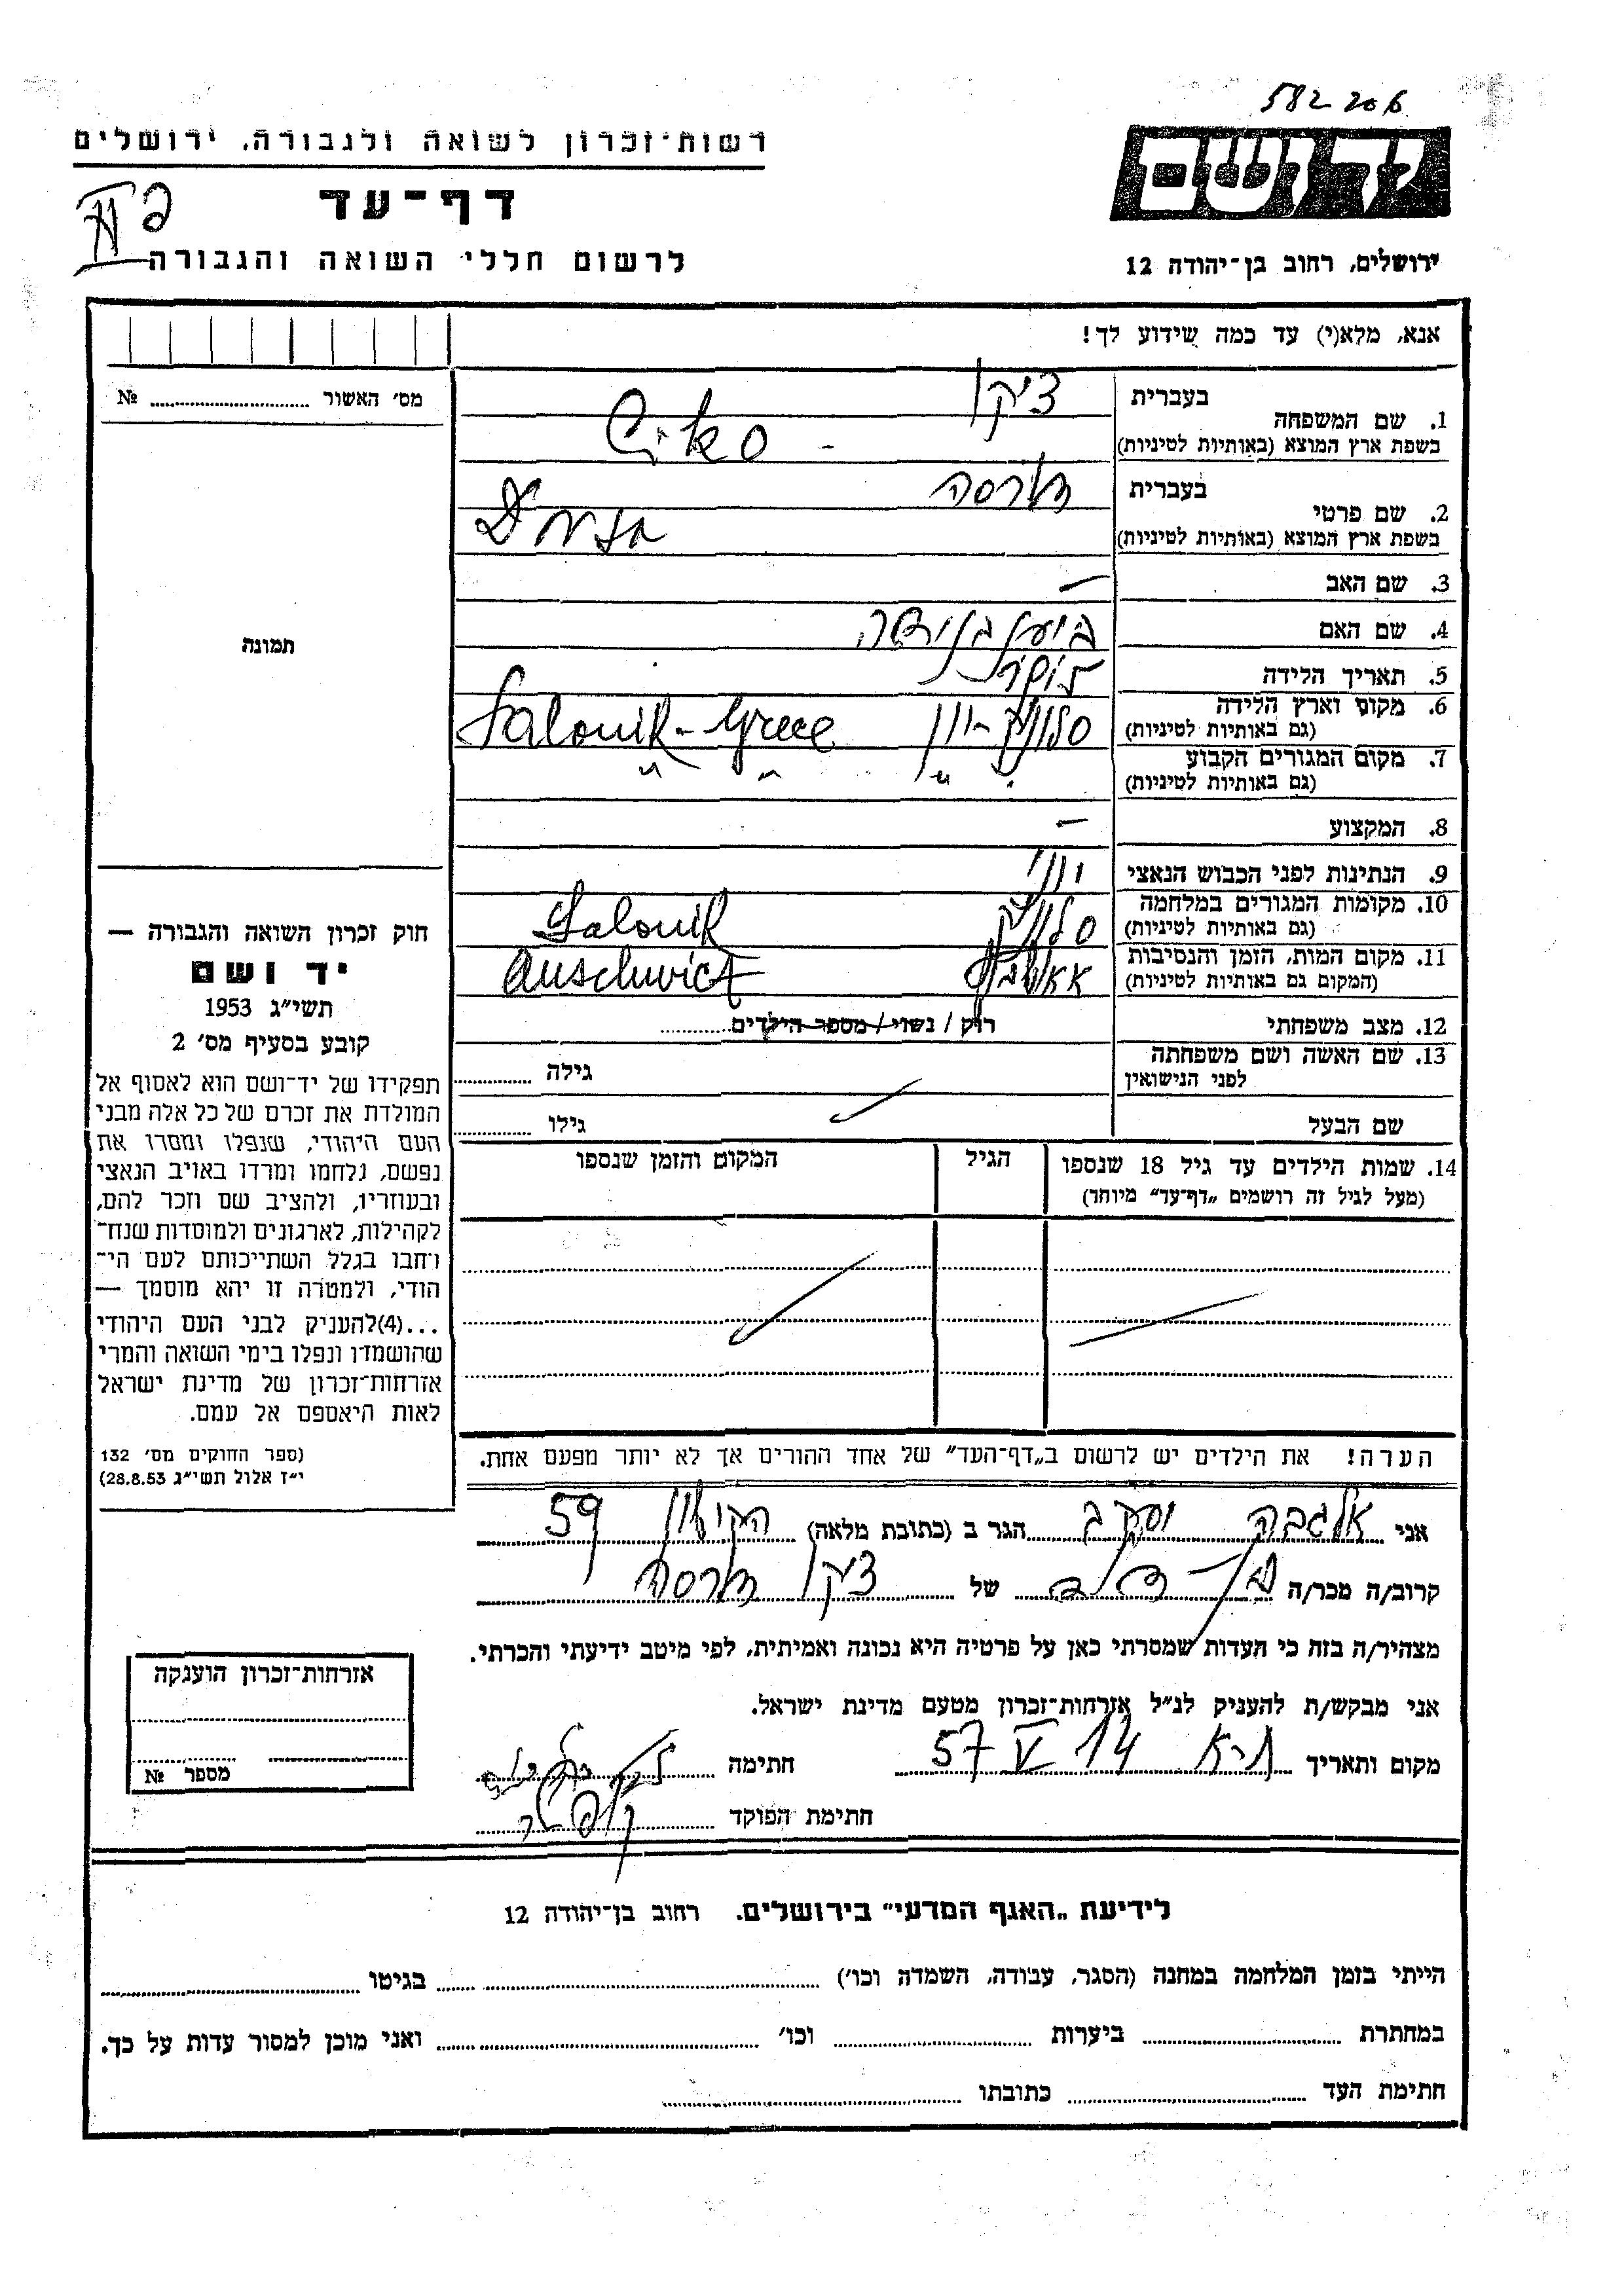 582206
רשות־זכרון לשואה ולגבורה, ירושלים
יד ושם
דף־עד
לרשום חללי השואה והגבורה
ירושלים, רחוב בן־יהודה 12
אנא, מלא(י) עד כמה שידוע לך!
מס׳ האשור № 
בעברית ציקו
1. שם המשפחה
בשפת ארץ המוצא (באותיות לטיניות) Ciko
בעברית
2. שם פרטי
בשפת ארץ המוצא (באותיות לטיניות)
3. שם האב –
4. שם האם
5. תאריך הלידה
6. מקום וארץ הלידה סלוניק - יון Salonik - Greece
(גם באותיות לטיניות)
7. מקום המגורים הקבוע " " " "
(גם באותיות לטיניות)
8. המקצוע –
9. הנתינות לפני הכבוש הנאצי יוני
10. מקומות המגורים במלחמה סלוניק Salonik
(גם באותיות לטיניות)
11. מקום המות, הזמן והנסיבות Auschwict
(המקום גם באותיות לטיניות)
12. מצב משפחתי רוק / נשוי / מספר הילדים
13. שם האשה ושם משפחתה גילה
לפני הנישואין
שם הבעל גילו
14. שמות הילדים עד גיל 18 שנספו הגיל המקום והזמן שנספו
(מעל לגיל זה רושמים „דף־עד" מיוחד)
תמונה
חוק זכרון השואה והגבורה —
יד ושם
תשי"ג 1953
קובע בסעיף מס׳ 2
תפקידו של יד־ושם הוא לאסוף אל
המולדת את זכרם של כל אלה מבני
העם היהודי, שנפלו ומסרו את
נפשם, נלחמו ומרדו באויב הנאצי
ובעוזריו, ולהציב שם וזכר להם,
לקהילות, לארגונים ולמוסדות שנח־
רחבו בגלל השתייכותם לעם הי־
הודי, ולמטרה זו יהא מוסמך —
...(4)להעניק לבני העם היהודי
שהושמדו ונפלו בימי השואה והמרי
אזרחות־זכרון של מדינת ישראל
לאות היאספם אל עמם.
(ספר החוקים מס׳ 132
י"ז אלול תשי"ג 28.8.53)
הערה! את הילדים יש לרשום ב„דף־העד" של אחד ההורים אך לא יותר מפעם אחת.
אני אלגבה יעקב הגר ב (כתובת מלאה) 59
קרוב/ה מכר/ה של ציקו
מצהיר/ה בזה כי העדות שמסרתי כאן על פרטיה היא נכונה ואמיתית, לפי מיטב ידיעתי והכרתי.
אני מבקש/ת להעניק לנ"ל אזרחות־זכרון מטעם מדינת ישראל.
מקום ותאריך ת-א 14 V 57 חתימה
חתימת הפוקד
אזרחות־זכרון הוענקה
מספר №
לידיעת „האגף המדעי" בירושלים. רחוב בן־יהודה 12
הייתי בזמן המלחמה במחנה (הסגר, עבודה, השמדה וכו׳) בגיטו
במחתרת ביערות וכו׳ ואני מוכן למסור עדות על כך.
חתימת העד כתובתו